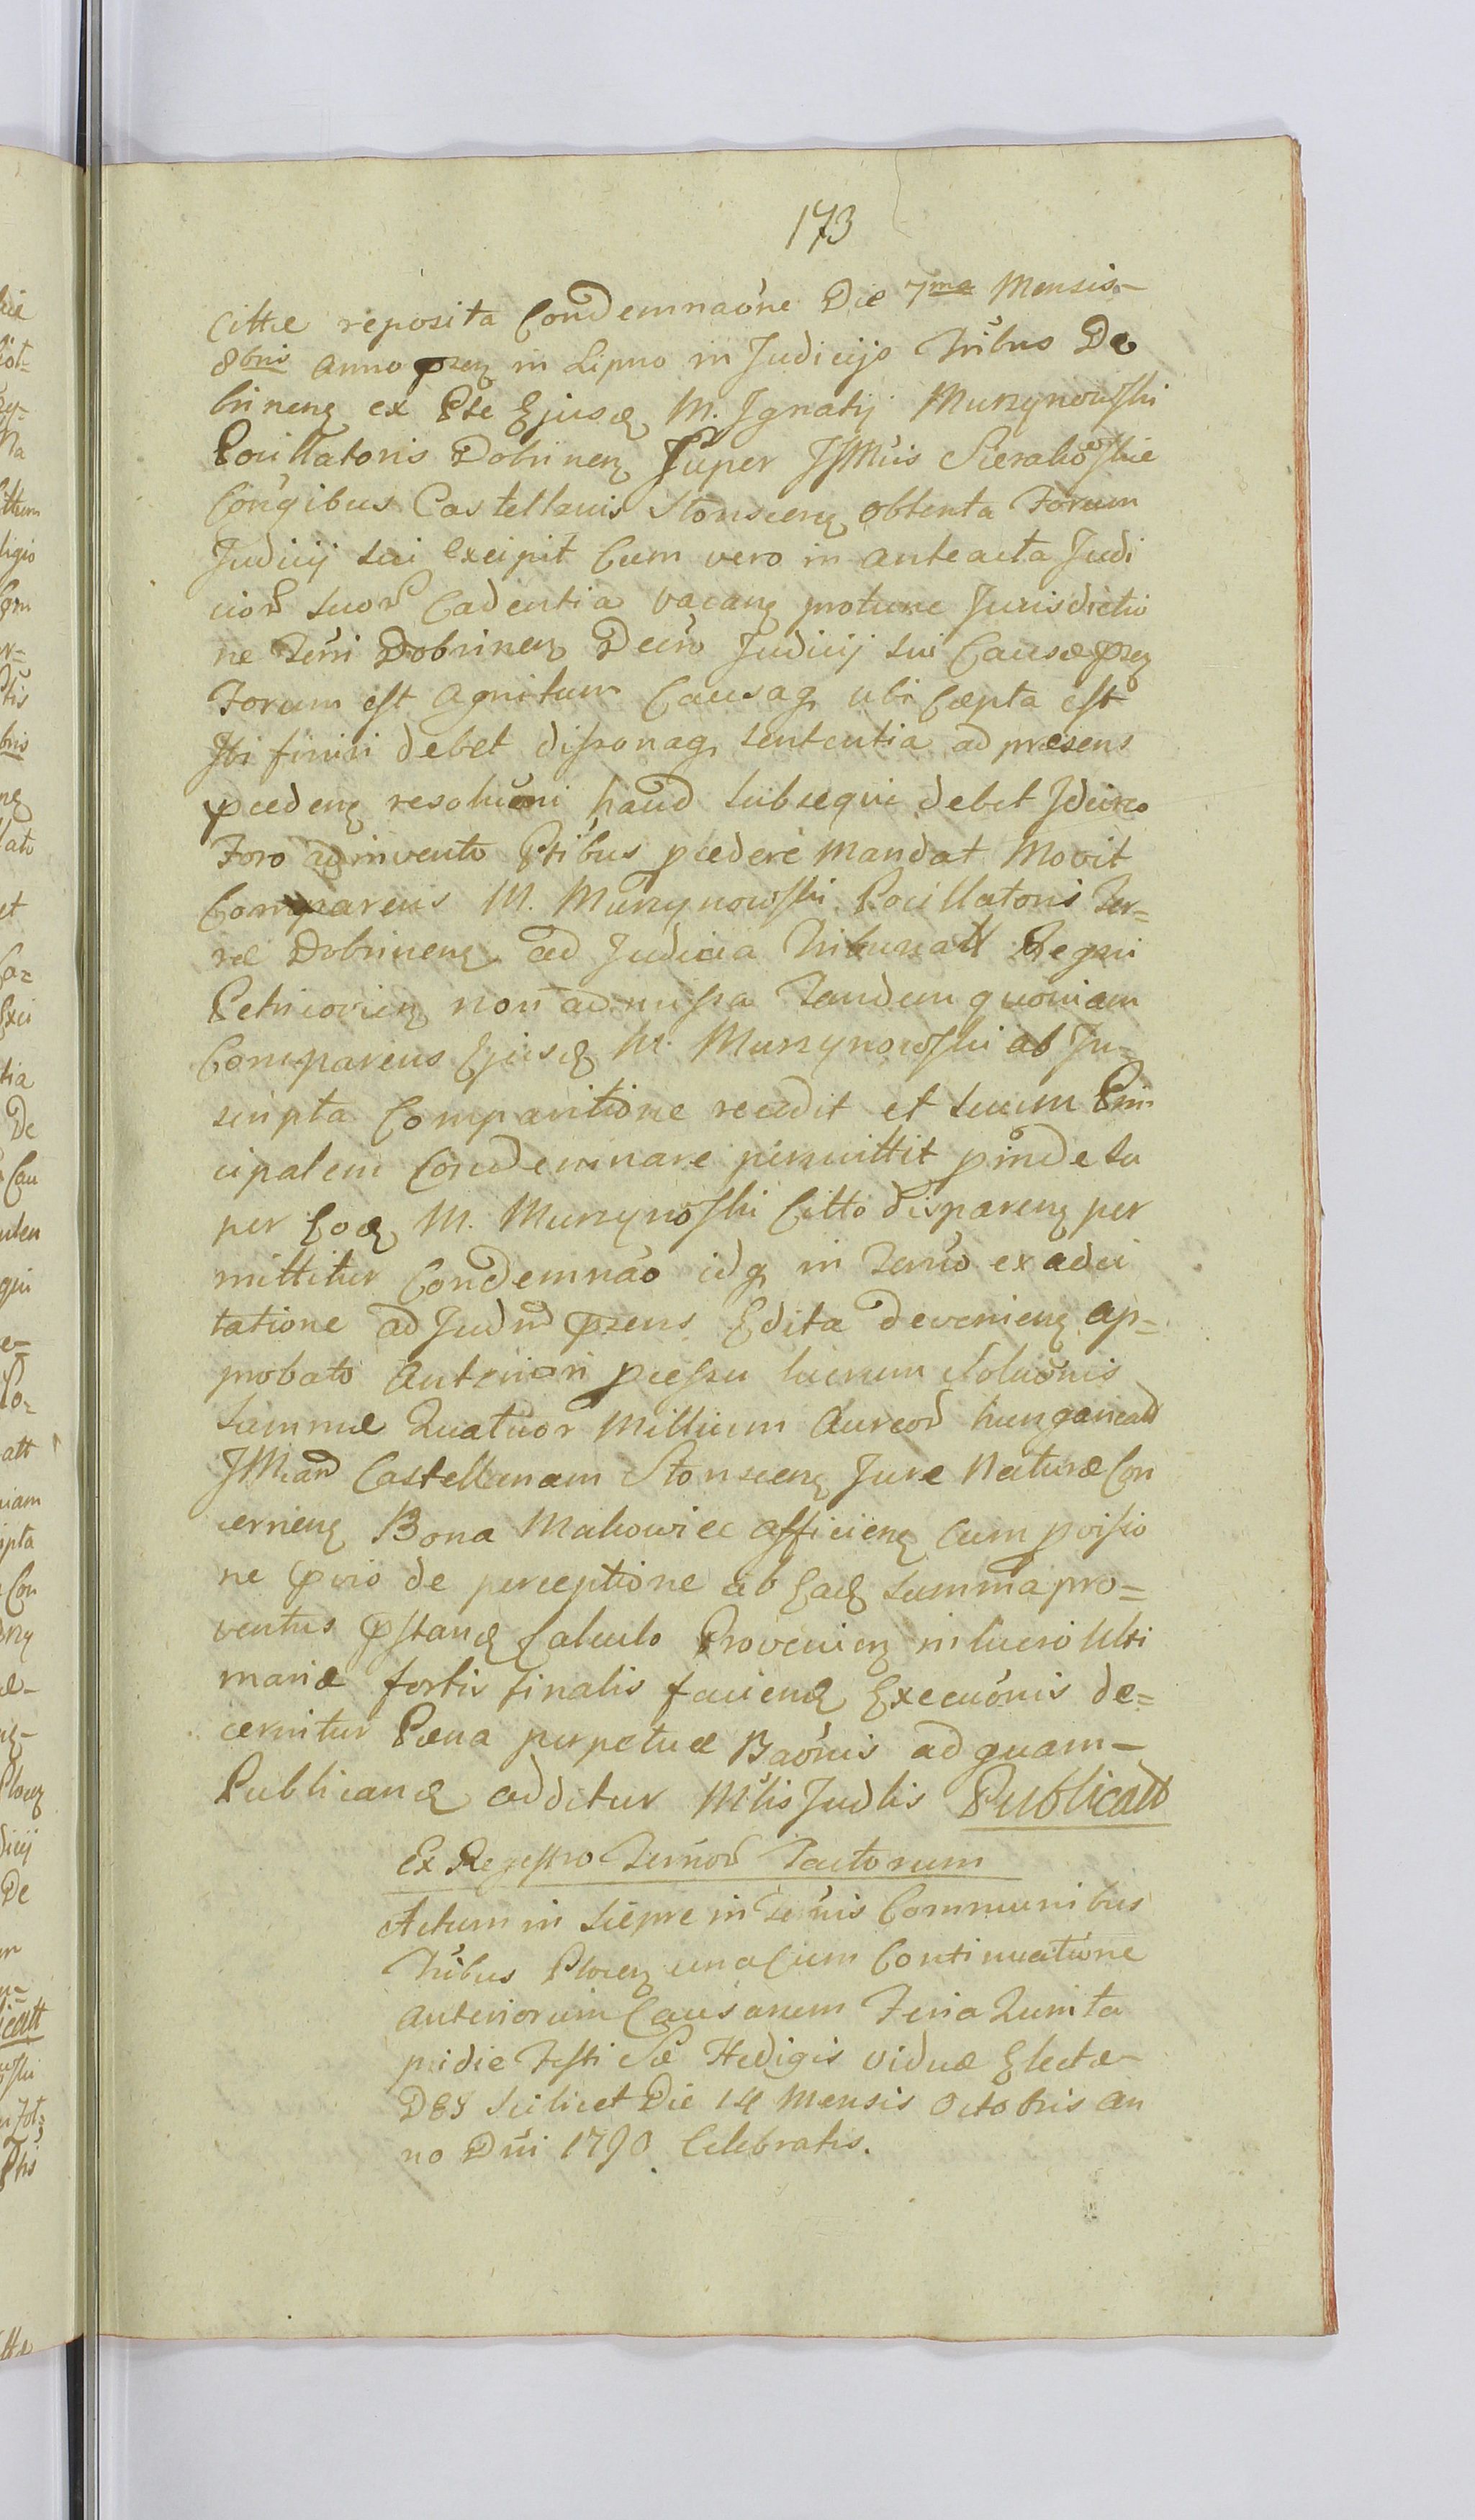 173
Cittæ reposita Condemnaóne Die 7ma Mensis
8bris Anno prnz in Lipno in Judicijs Tribus Do
brinenz ex Pte Ejusd, M. Ignatij Murzynowski
Pocillatoris Dobrinenz Super JJMuis Sierakowskie
Congibus Castellanis Słonscenz obtenta Forum
Judicij sui excipit Cum vero in anteacta Judi
cior suor Cadentia vacanz protunc Jurisdictio
ne Terri Dobrinenz Decro Judicij sui Causæ prnz
Forum est agnitum Causaq ubi Cæpta est
Ibi finiri debet disponaq, sententia ad præsens
pcedenz resoluóni haud subsequi debet Idcirco
Foro adinvento Ptibus pcedere mandat Movit
Comparens M. Murzynowski Pocillatoris Ter=
ræ Dobrinenz ad Judicia Tribunall Regni
Petricovienz non admissa Tandem quoniam
Comparens Ejusd M. Murzynowski ab In=
scripta Comparitione recedit et suum Prin
cipalem Condemnare permittit proinde su
per Eod M. Murzynoski Citto disparenz per
mittitur Condemnáo idq in Terno ex adci
tatione ad Judm prens Edita devenienz ap=
probato Anteriori pcessu lucrum Soluónis
Summæ Quatuor Millium Aureor hungaricall
JMiam Castellanam Słonscenz Jure Naturæ Con
cernenz Bona Makowiec afficienz cum provisio
ne de perceptione ab Ead summa pro=
ventus pstand Calculo Provenienz in lucro Ulti
mariæ fortis finalis faciend Execuónis de=
cernitur Pæna perpetuæ Baónis ad quam
Publicand additur Mlis Judlis Publicatt
Ex Regestro Ternor Tactorum
Actum in Sierpc in Ternis Communibus
Tribus Plocenz una cum Continuatione
anteriorum Causarum Feria Quinta
pridie Festi Sæ Hedigis viduæ Electæ
DEI scilicet Die 14 Mensis Octobris An
no Dni 1790. Celebratis.